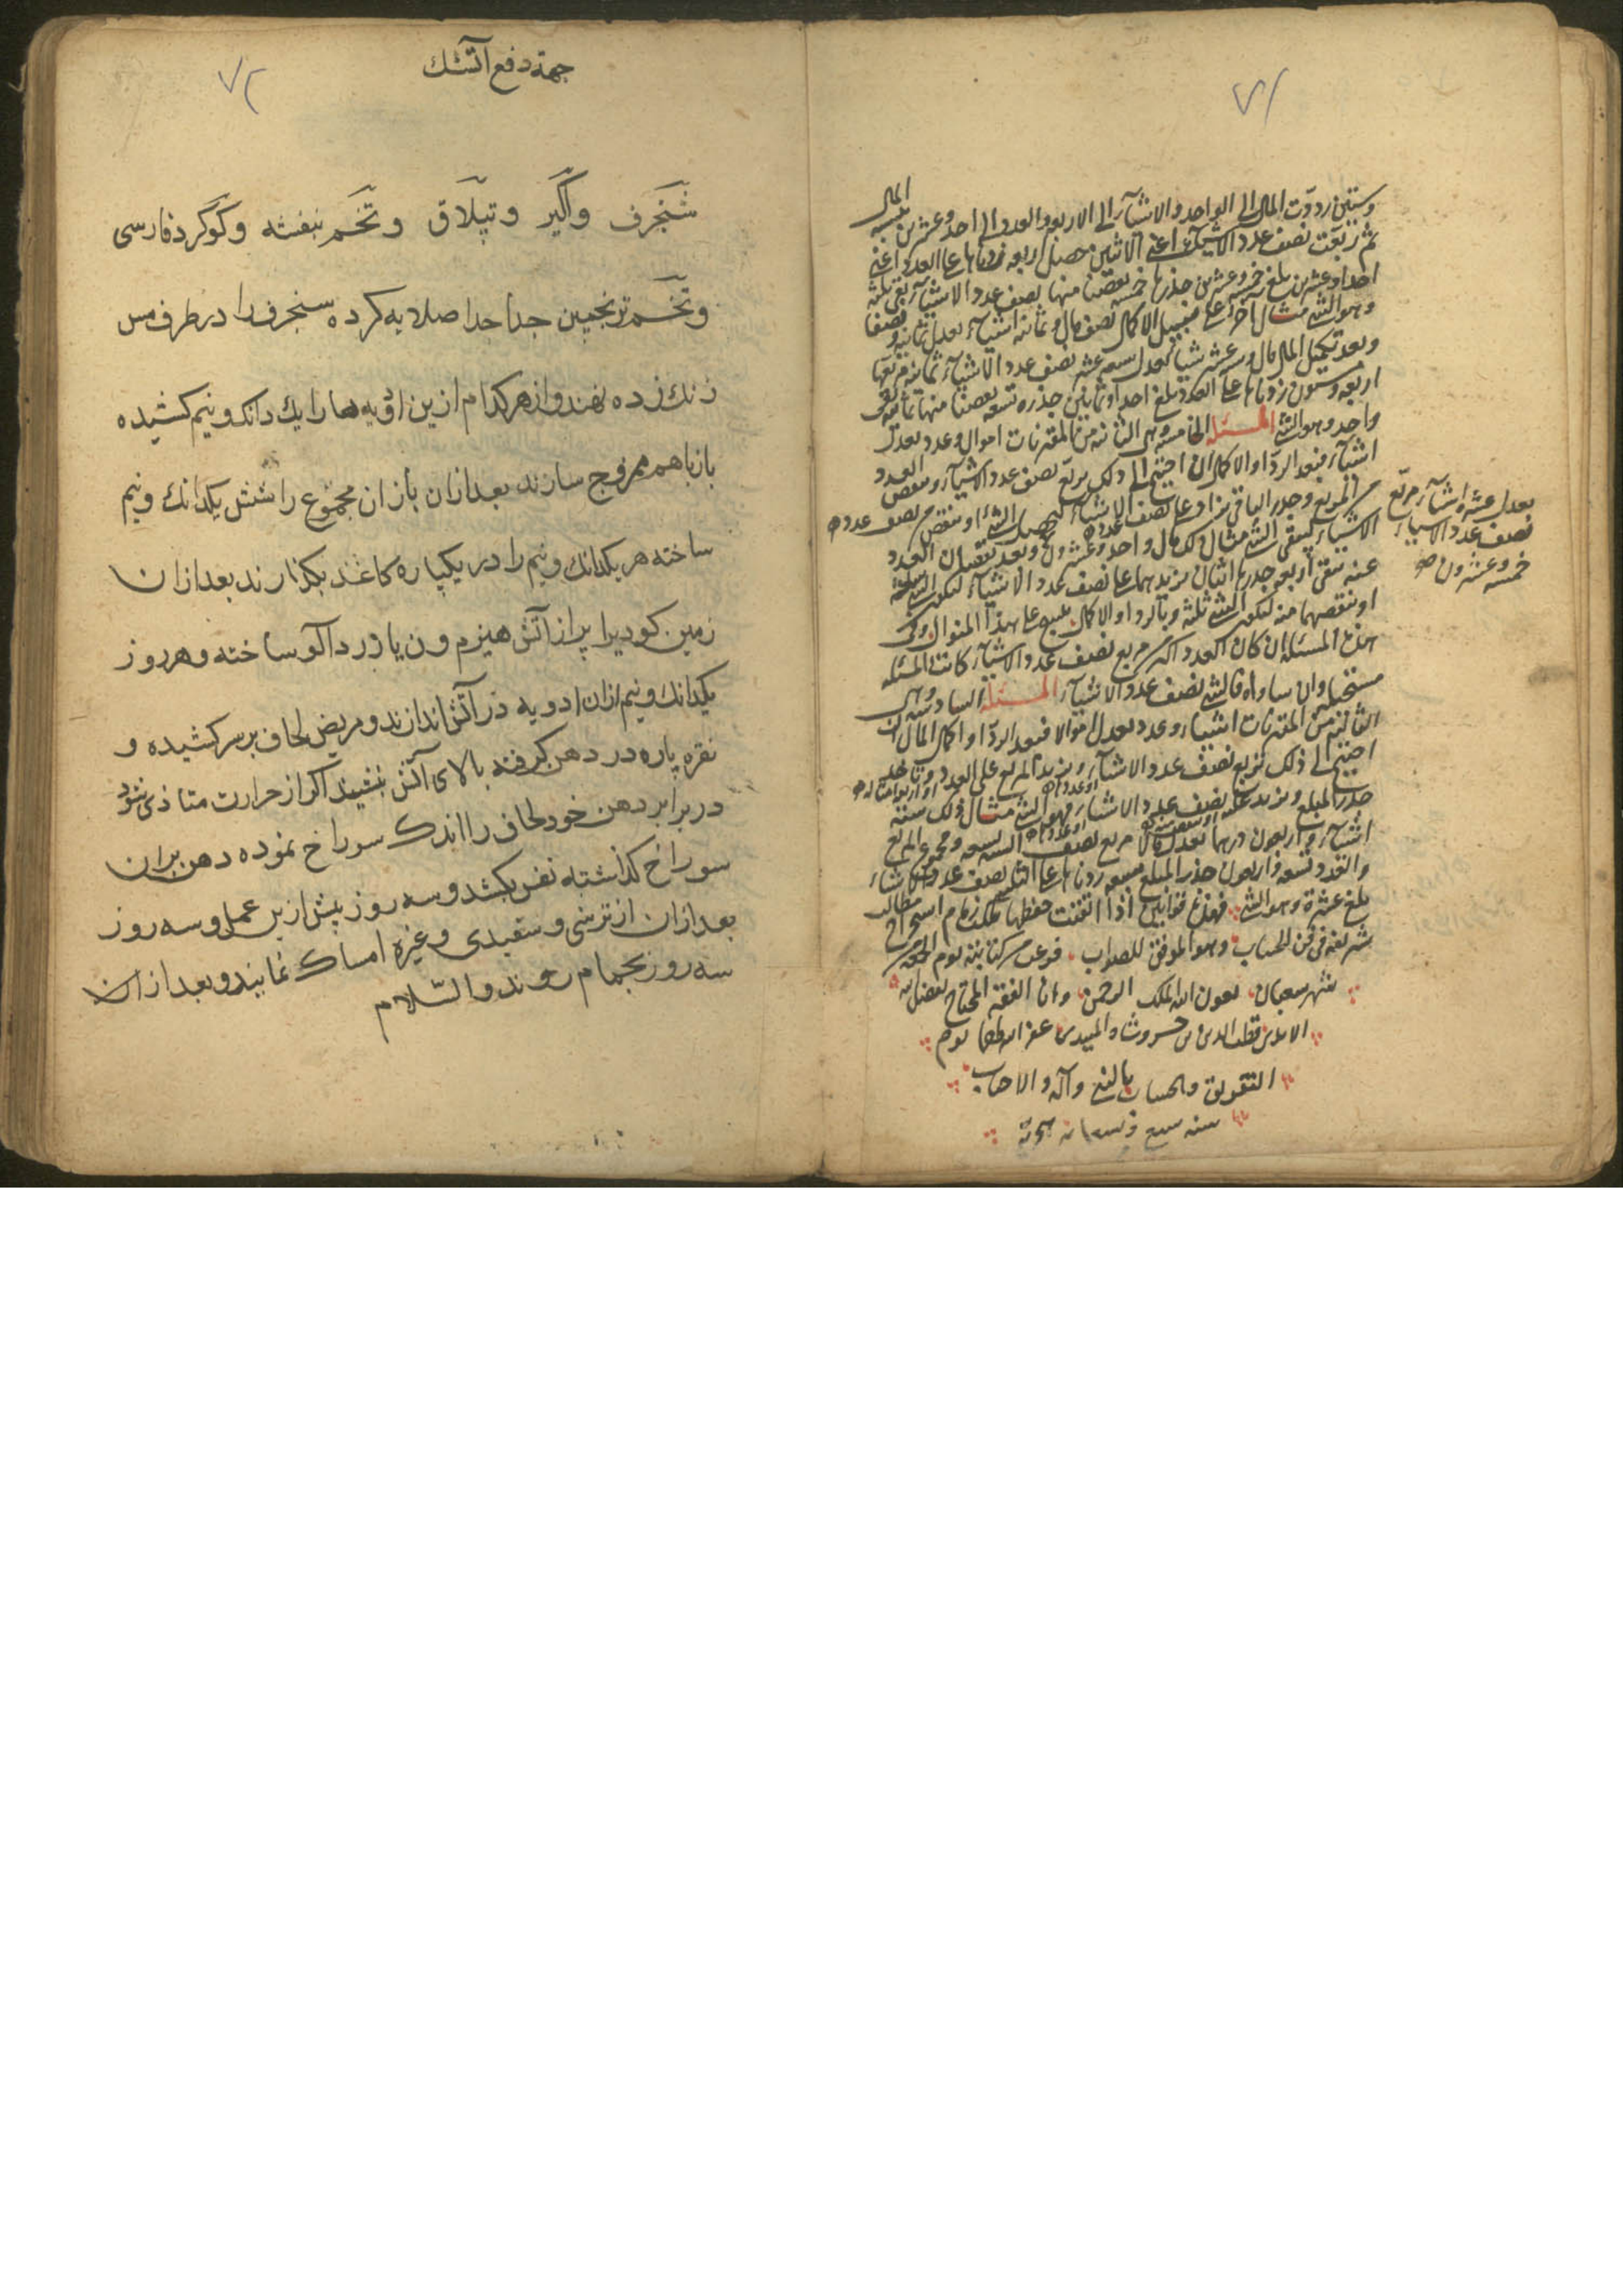 ٧١
وستين رددت المال الى الواحد والاشيآء الى الاربعة والعدد الى احد وعشرين المال بنسبة
ثم ربعت نصف عدد الاشيآء اعنى الاثنين حصل اربعة زدناها على العدد اعنى
احدا وعشرين بلغ خمسة وعشرين جذرها خمسة نقصنا منها نصف عدد الاشيآء بقى ثلثة
وهو الشئ مثال آخر على سبيل الاكمال نصف مال وثمانية اشيآء يعدل ثمانية ونصفا
وبعد تكميل المال مال وستة عشر شيئا يعدل سبعة عشر نصف عدد الاشيآء ثمانية مربعها
اربعة وستون زدناها على العدد بلغ احدا وثمانين جذره تسعة نقصنا منها ثمانية بقى
واحد وهو الشئ المسئلة الخامسة وهى الثانية من المقترنات اموال وعدد يعدل
اشيآء فبعد الرد او الاكمال ان احتيج الى ذلك يربع نصف عدد الاشيآء وينقص العدد
من المربع وجذر الباقى يزاد على نصف عدد الاشيآء ليحصل الشئ او ينقص من نصف عدده
الاشيآء ليبقى الشئ مثال ذلك مال واحد وعشرون وبعد نقصان العدد
يعدل عشرة اشيآء مربع
نصف عدد الاشيآء
خمسة وعشرون صح
عنه يبقى اربعة جذرها اثنان نزيدهما على نصف عدد الاشيآء ليكون الشئ سبعة
او ننقصهما منه ليكون الشئ ثلثة وبالرد او الاكمال على هذا المنوال وفى
هذه المسئلة ان كان العدد اكثر من مربع نصف عدد الاشيآء كانت المسئلة
مستحيلة وان ساواه فالشئ نصف عدد الاشيآء المسئلة السادسة وهى
الثالثة من المقترنات اشياء وعدد يعدل اموالا فبعد الرد او اكمال المال ان
احتيج الى ذلك نربع نصف عدد الاشيآء ونزيد المربع على العدد وناخذ
جذر المبلغ ونزيد على نصف عدد الاشيآء فهو الشئ مثال ذلك ستة
اشيآء واربعون درهما يعدل مالا مربع نصف الستة تسعة ومجموع المربع
والعدد تسعة واربعون جذر المبلغ سبعة زدناها على الثلثة نصف عدد الاشياء
بلغ عشرة وهو الشئ فهذه قوانين اذا اتقنت حفظها ملكت زمام استخراج مطالب
شريفة فى فن الحساب وهو الموفق للصواب فرغت من كتابته يوم
شهر شعبان بعون الله الملك الرحمن وانا الفقير المحتاج بفضل
قطب الدين بن خسروشاه الميبدى عفر الله يوم
التفريق والحساب بالنبى وآله والاصحاب
سنة هجرية
٧٢
جهة دفع آتشك
شنجرف واكير وتپلاق وتخم بنفشه وكوگرد فارسى
وتخم ترنجبين جدا جدا صلايه كرده سنجرف را در ظرف مس
زنك زده نهند واز هر كدام ازين ادويه ها را يك دانك ونيم كشيده
باز باهم ممزوج سازند بعد ازان باز ان مجموع را شش يكدانك ونيم
ساخته هر يكدانك ونيم را در يكپاره كاغذ بكذارند بعد ازان
زمين كوديرا پر از آتش هيزم ون يا ورداآلو ساخته وهر روز
يكدانك ونيم ازان ادويه در آتش اندازند ومريض لحاف بر سر كشيده و
نقره پاره در دهن كرفته بالاى آتش بنشيند اكر از حرارت متاذى شود
در برابر دهن خود لحاف را اندك سوراخ نموده دهن بران
سوراخ كذاشته نفس بكشد وسه روز پيش ازين عمل وسه روز
بعد ازان از ترشى وسفيدى وغيره امساك نمايند وبعد ازان
سه روز بحمام روند والسّلام